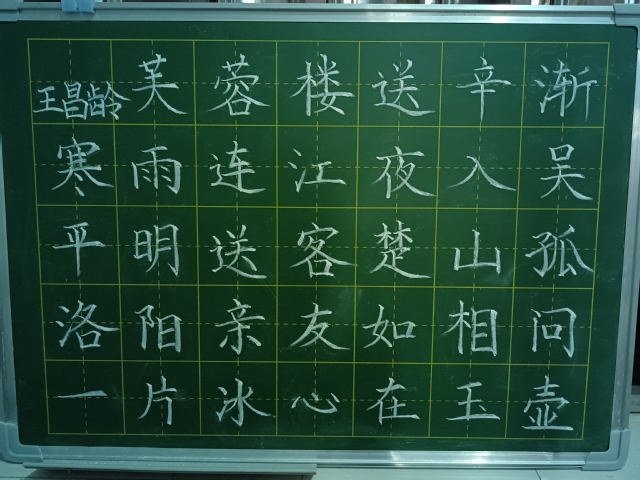 王昌龄芙蓉楼送辛渐
寒雨连江夜入吴
平明送客楚山孤
洛阳亲友如相问
一片冰心在玉壶